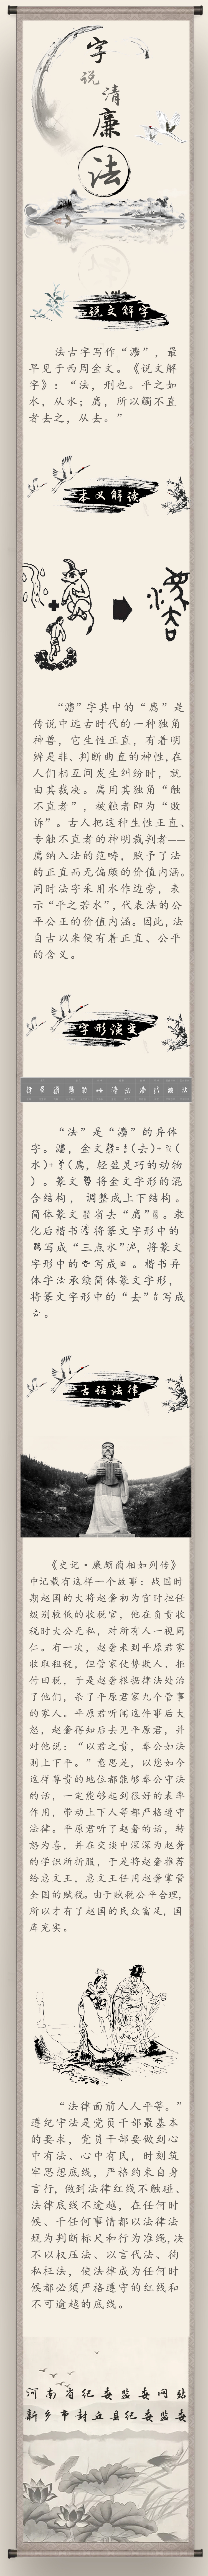 字
说
清
廉
法
说文解字
法古字写作“灋”，最
早见于西周金文。《说文解
字》：“法，刑也。平之如
水，从水；廌，所以觸不直
者去之，从去。”
本义解读
“灋”字其中的“廌”是
传说中远古时代的一种独角
神兽，它生性正直，有着明
辨是非、判断曲直的神性，在
人们相互间发生纠纷时，就
由其裁决。廌用其独角“触
不直者”，被触者即为“败
诉”。古人把这种生性正直、
专触不直者的神明裁判者——
廌纳入法的范畴，赋予了法
的正直而无偏颇的价值内涵。
同时法字采用水作边旁，表
示“平之若水”，代表法的公
平公正的价值内涵。因此，法
自古以来便有着正直、公平
的含义。
字形演变
“法”是“灋”的异体
字。灋，金文（去）（
水）（廌，轻盈灵巧的动物
）。篆文将金文字形的混
合结构，调整成上下结构。
简体篆文省去“廌”。隶
化后楷书将篆文字形中的
写成“三点水”，将篆文
字形中的写成。楷书异
体字法承续简体篆文字形，
将篆文字形中的“去”写成
去。
古话法律
《史记·廉颇蔺相如列传》
中记载有这样一个故事：战国时
期赵国的大将赵奢初为官时担任
级别较低的收税官，他在负责收
税时大公无私，对所有人一视同
仁。有一次，赵奢来到平原君家
收取租税，但管家仗势欺人、拒
付田税，于是赵奢根据律法处治
了他们，杀了平原君家九个管事
的家人。平原君听闻这件事后大
怒，赵奢得知后去见平原君，并
对他说：“以君之贵，奉公如法
则上下平。”意思是，以您如今
这样尊贵的地位都能够奉公守法
的话，一定能够起到很好的表率
作用，带动上下人等都严格遵守
法律。平原君听了赵奢的话，转
怒为喜，并在交谈中深深为赵奢
的学识所折服，于是将赵奢推荐
给惠文王，惠文王任用赵奢掌管
全国的赋税。由于赋税公平合理，
所以才有了赵国的民众富足，国
库充实。
“法律面前人人平等。”
遵纪守法是党员干部最基本
的要求，党员干部要做到心
中有法、心中有民，时刻筑
牢思想底线，严格约束自身
言行，做到法律红线不触碰、
法律底线不逾越，在任何时
候、干任何事情都以法律法
规为判断标尺和行为准绳，决
不以权压法、以言代法、徇
私枉法，使法律成为任何时
候都必须严格遵守的红线和
不可逾越的底线。
河南省纪委监委网站
新乡市封丘县纪委监委